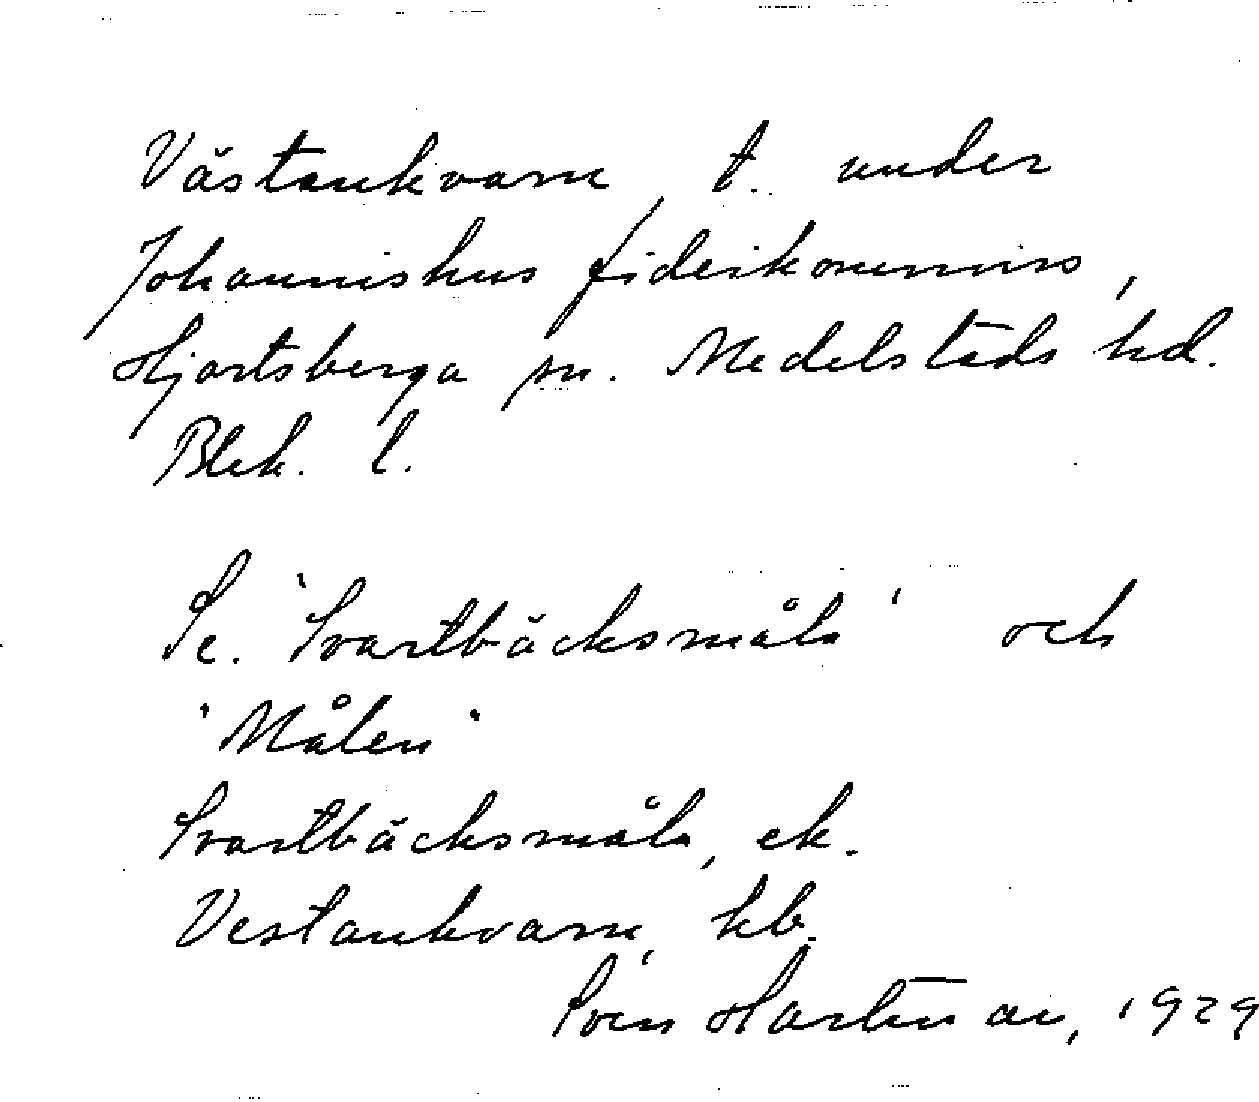 Västankvarn, t. under
Johannishus fideikommiss,
Hjortsberga sn. Medelstads hd.
Blek. l.
Se. "Svartbäcksmåla" och
"Målen"
Svartbäcksmåla, ek.
Vestankvarn, kb.
Sven Hartman, 1929